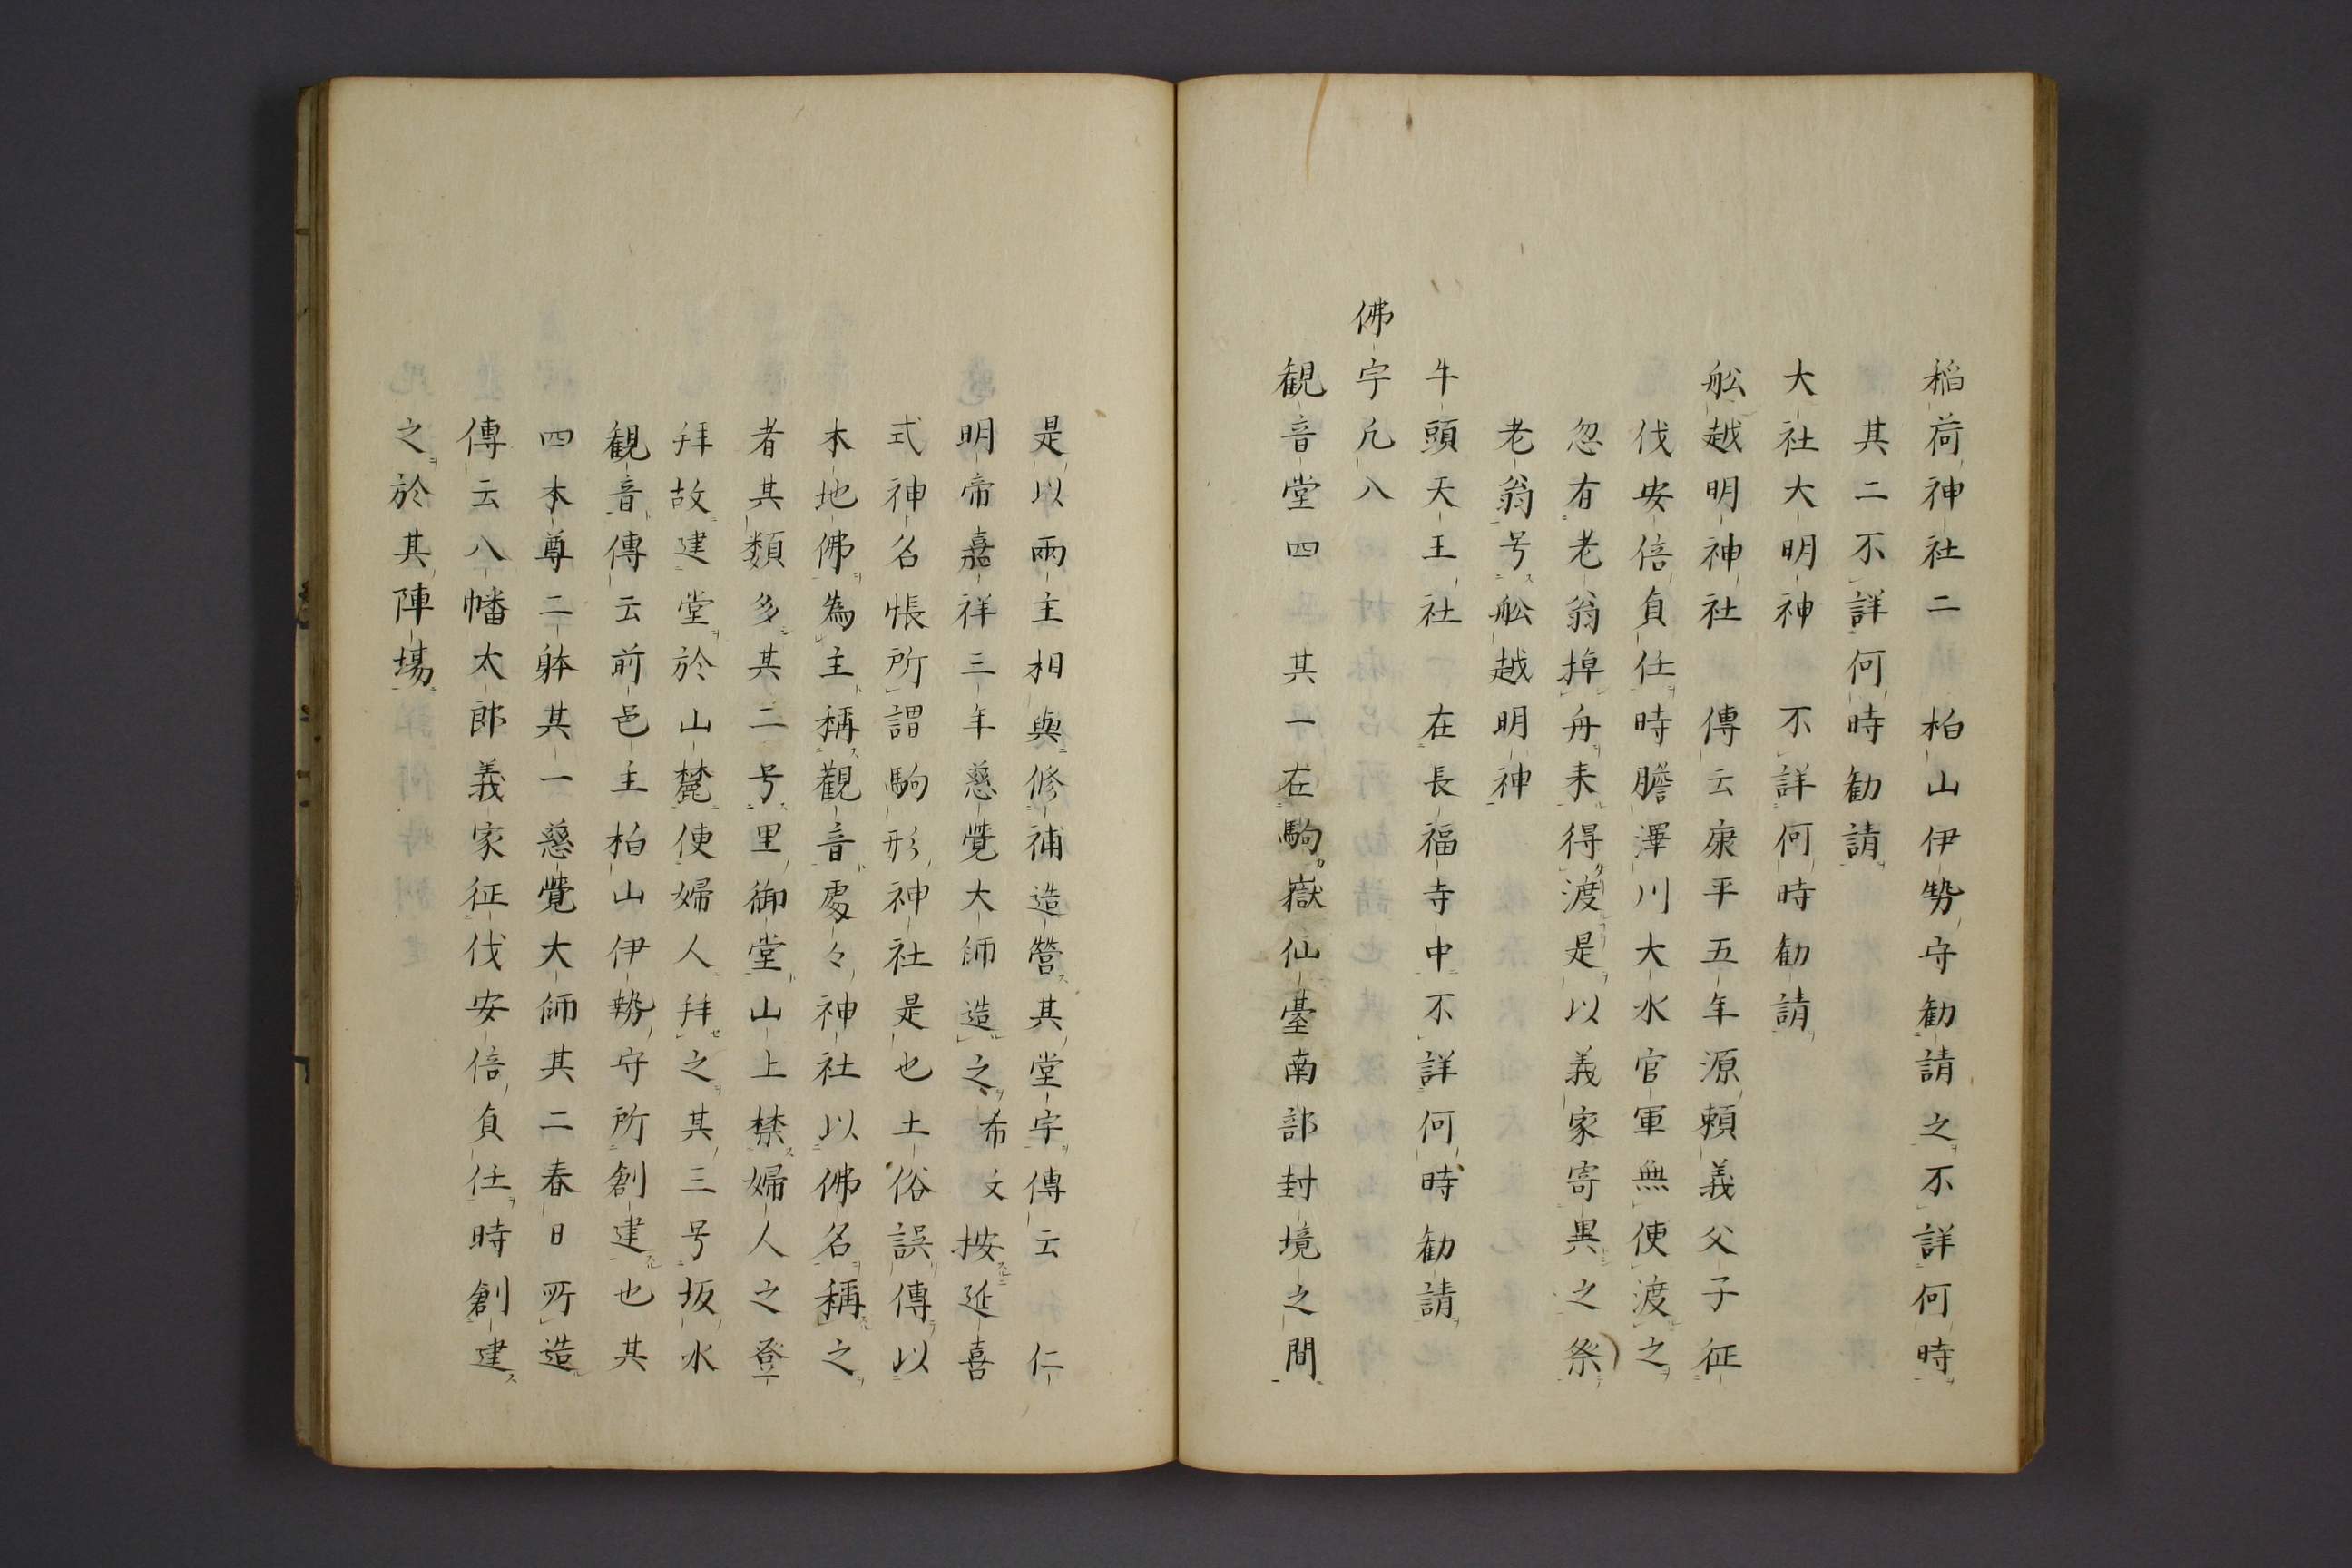 稲荷神社二　柏山伊勢守勧請之不詳何時
其二不詳何時勧請
大社大明神　不詳何時勧請
舩越明神社　傳云康平五年源頼義父子征
伐安倍貞任時膽澤川大水官軍無使渡之
忽有老翁掉舟来得渡是以義家寄異之祭
老翁号舩越明神
牛頭天王社　在長福寺中不詳何時勧請
佛宇凢八
観音堂四　其一在駒嶽仙臺南部封境之間
是以兩主相與修補造營其堂宇傳云　仁
明帝嘉祥三年慈覺大師造之布文按延喜
式神名帳所謂駒形神社是也土俗誤傳以
本地佛為主稱觀音處々神社以佛名稱之
者其類多其二号里御堂山上禁婦人之登
拜故建堂於山麓使婦人拜之其三号坂水
観音傳云前邑主柏山伊勢守所創建也其
四本尊二躰其一慈覺大師其二春日所造
傳云八幡太郎義家征伐安倍貞任時創建
之於其陣場